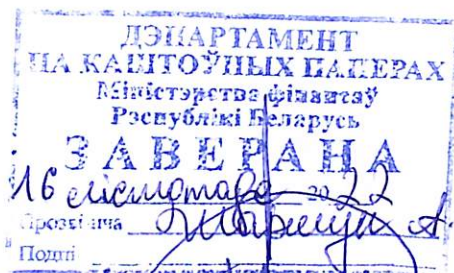 ДЭПАРТАМЕНТ
ПА КАШТОЎНЫХ ПАПЕРАХ
Міністэрства фінансаў
Рэспублікі Беларусь
ЗАВЕРАНА
16 лістапада 2022
Прозвішча
Подпіс